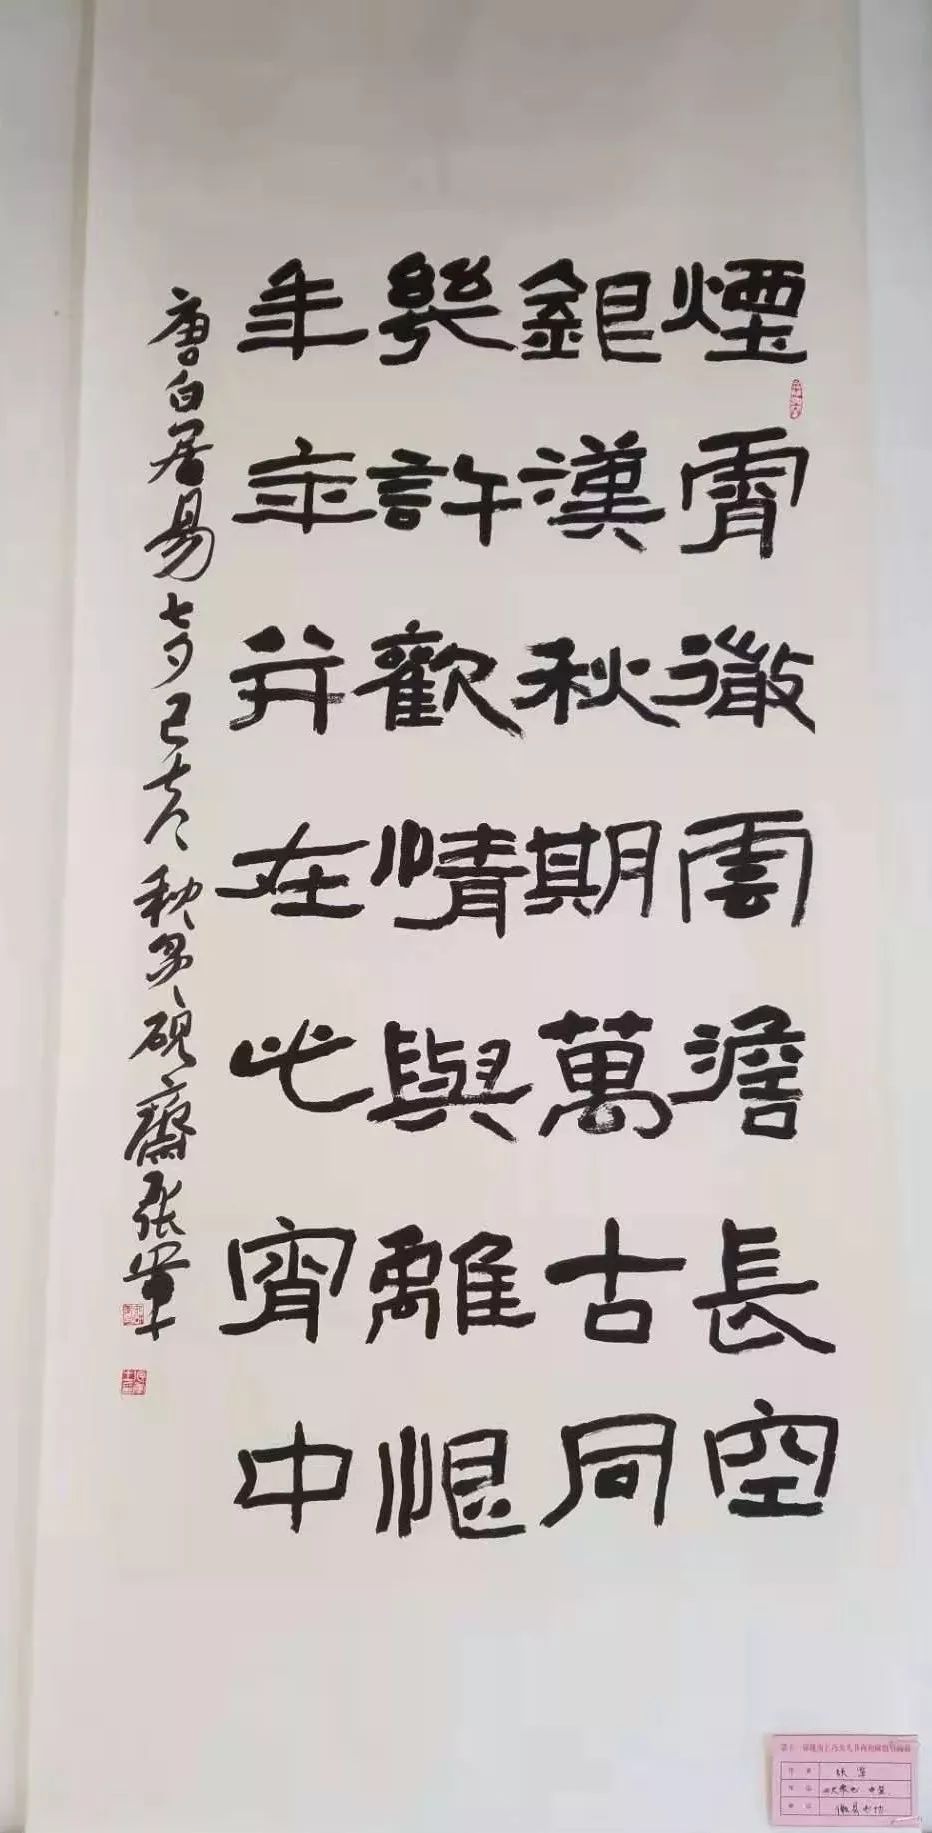 煙霄微雲澹長空
銀漢秋期萬古同
幾許歡情與離恨
年年并在此宵中
唐白居易七夕己亥秋月硯齋張軍